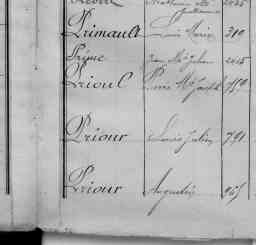 Primault Louis Marie 310
Prime Jean Me Julien 2415
Prioul Pierre Me Joseph 750
Priour Louis Julien 791
Priour Augustin 965